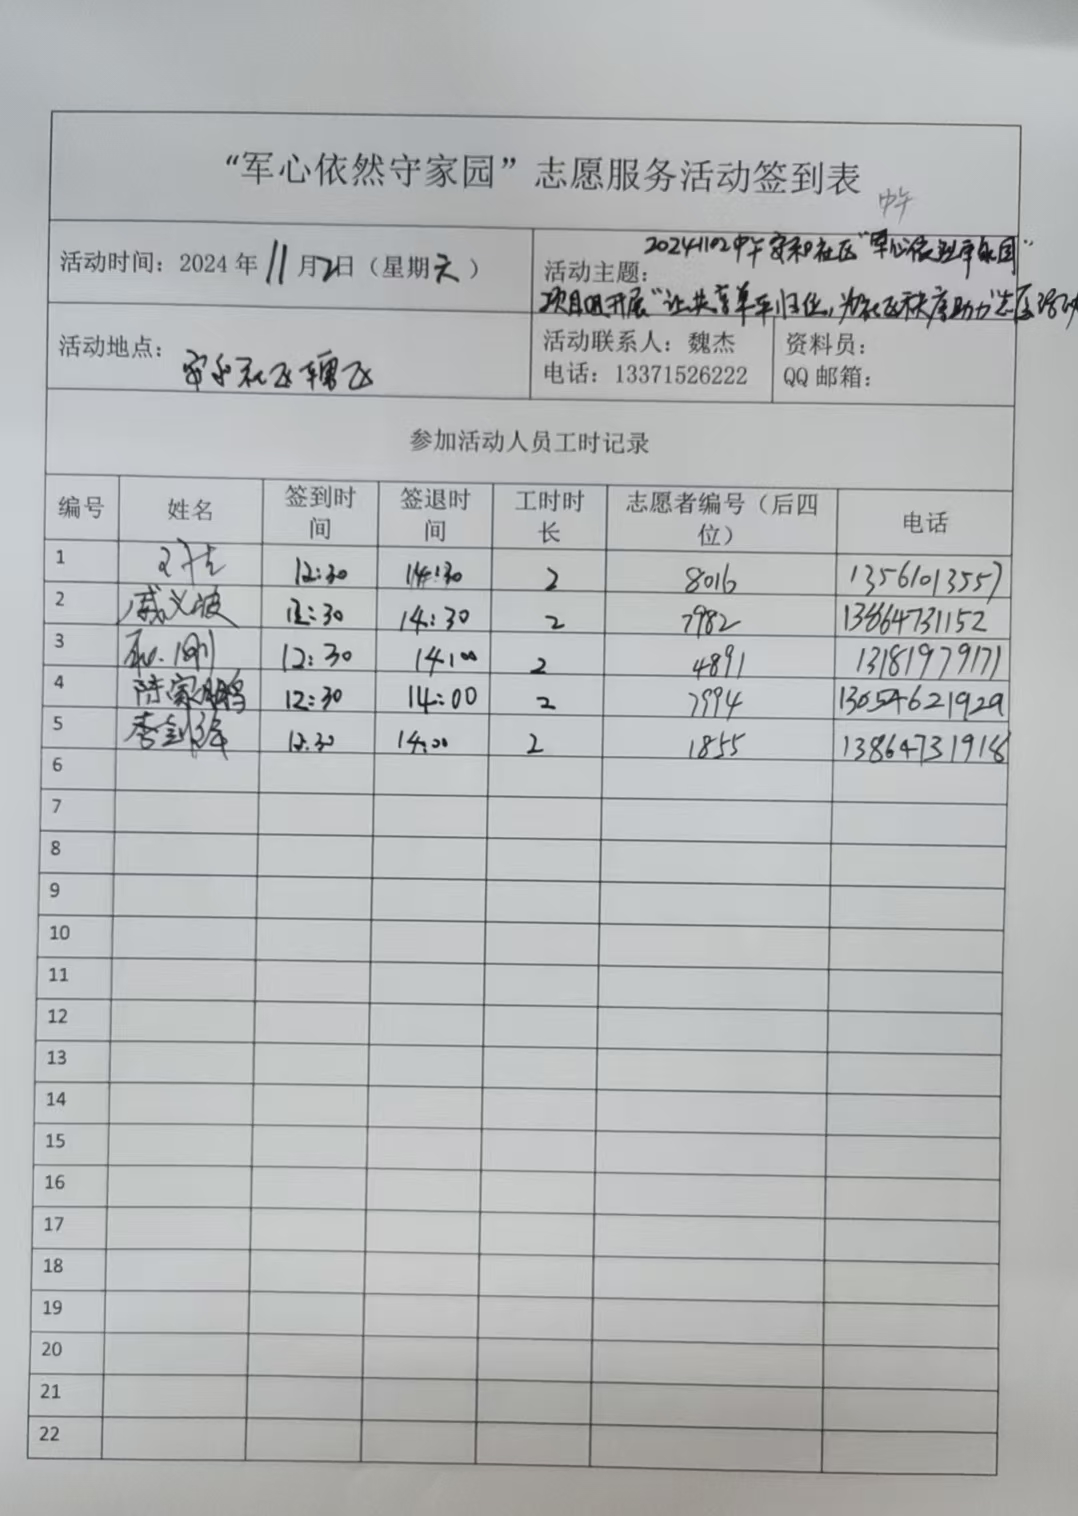 “军心依然守家园”志愿服务活动签到表
中午
活动时间：2024 年 11 月 2 日（星期六）
20241102中午安和社区“军心依然守家园”
活动主题：
项目组开展“让共享单车归位，为社区秩序助力”志愿活动
活动地点：安和社区辖区
活动联系人：魏杰 资料员：
电话：13371526222 QQ 邮箱：
参加活动人员工时记录
编号 姓名 签到时间 签退时间 工时时长 志愿者编号（后四位） 电话
1 12:30 14:30 2 8016 13561013557
2 戚义波 12:30 14:30 2 7982 13864731152
3 12:30 14:00 2 4891 13181979171
4 陈家鹏 12:30 14:00 2 7994 13054621929
5 李剑锋 12:30 14:00 2 1855 13864731918
6
7
8
9
10
11
12
13
14
15
16
17
18
19
20
21
22